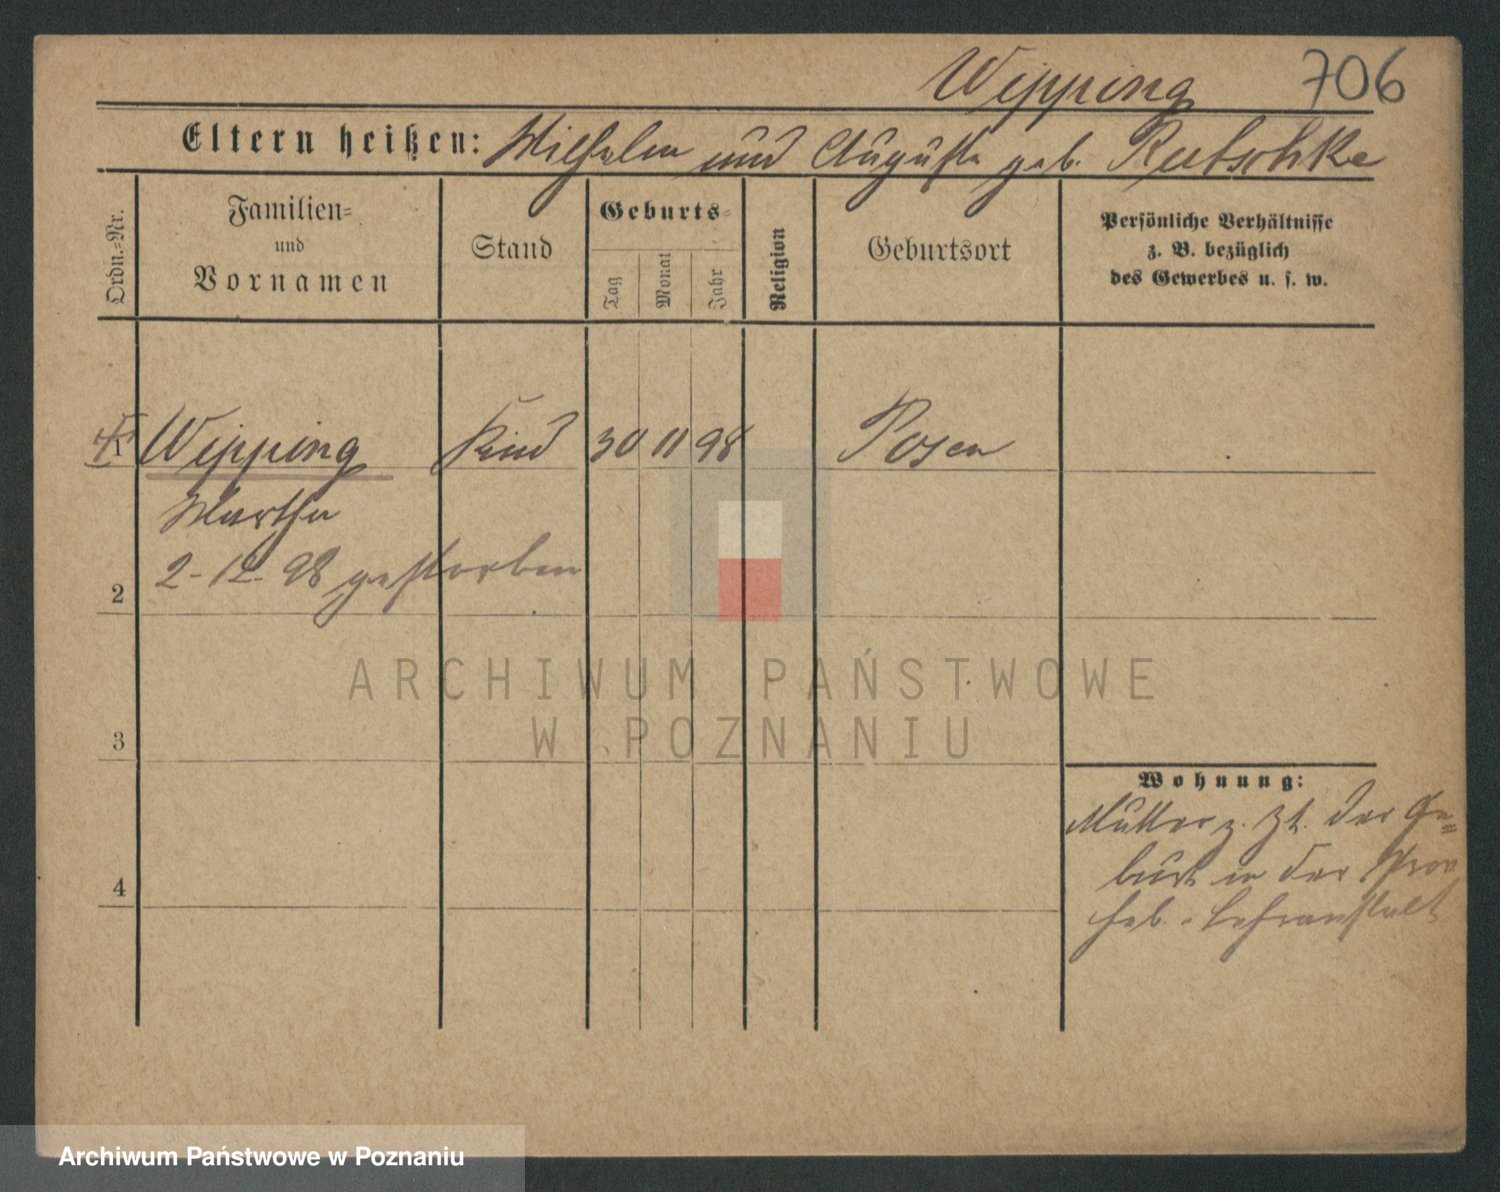 Wipping 706
Eltern heißen: Wilhelm und Auguste geb. Rutschke
Ordn.=Nr.
Familien=
und
Vornamen
Stand
Geburts=
Tag
Monat
Jahr
Religion
Geburtsort
Persönliche Verhältnisse
z. B. bezüglich
des Gewerbes u. s. w.
1 Wipping Kind 30 11 98 Posen
Martha
2 2-12-98 gestorben
3
4
Wohnung:
Mutter z. Zt. der Ge=
burt in der Prov
Heb.-Lehranstalt
ARCHIWUM PAŃSTWOWE
W POZNANIU
Archiwum Państwowe w Poznaniu